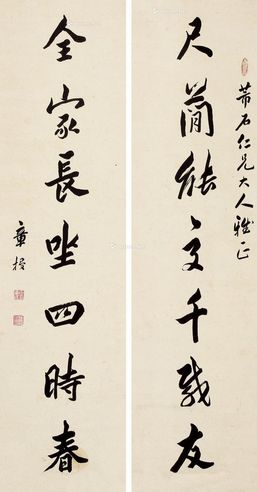 蒂石仁兄大人雅正
尺簡能交千載友
全家長坐四時春
章梫